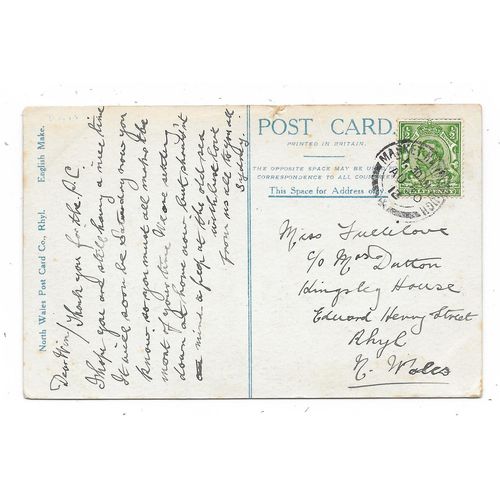 North Wales Post Card Co., Rhyl. English Make.
Dear Win/ Thank you for the P.C
I hope you are still having a nice time
It will soon be Saturday now you
know, so you must all make the
most of your time We are settling
down at home now but shouldn't
mind a peep at the old sea
with best love
from us all to you all
Sydney.
POST CARD.
PRINTED IN BRITAIN.
THE OPPOSITE SPACE MAY BE USED
CORRESPONDENCE TO ALL
This Space for Address only.
Miss Fullelove
c/o Mrs Dutton
Kingsley House
Edward Henry Street
Rhyl
N. Wales